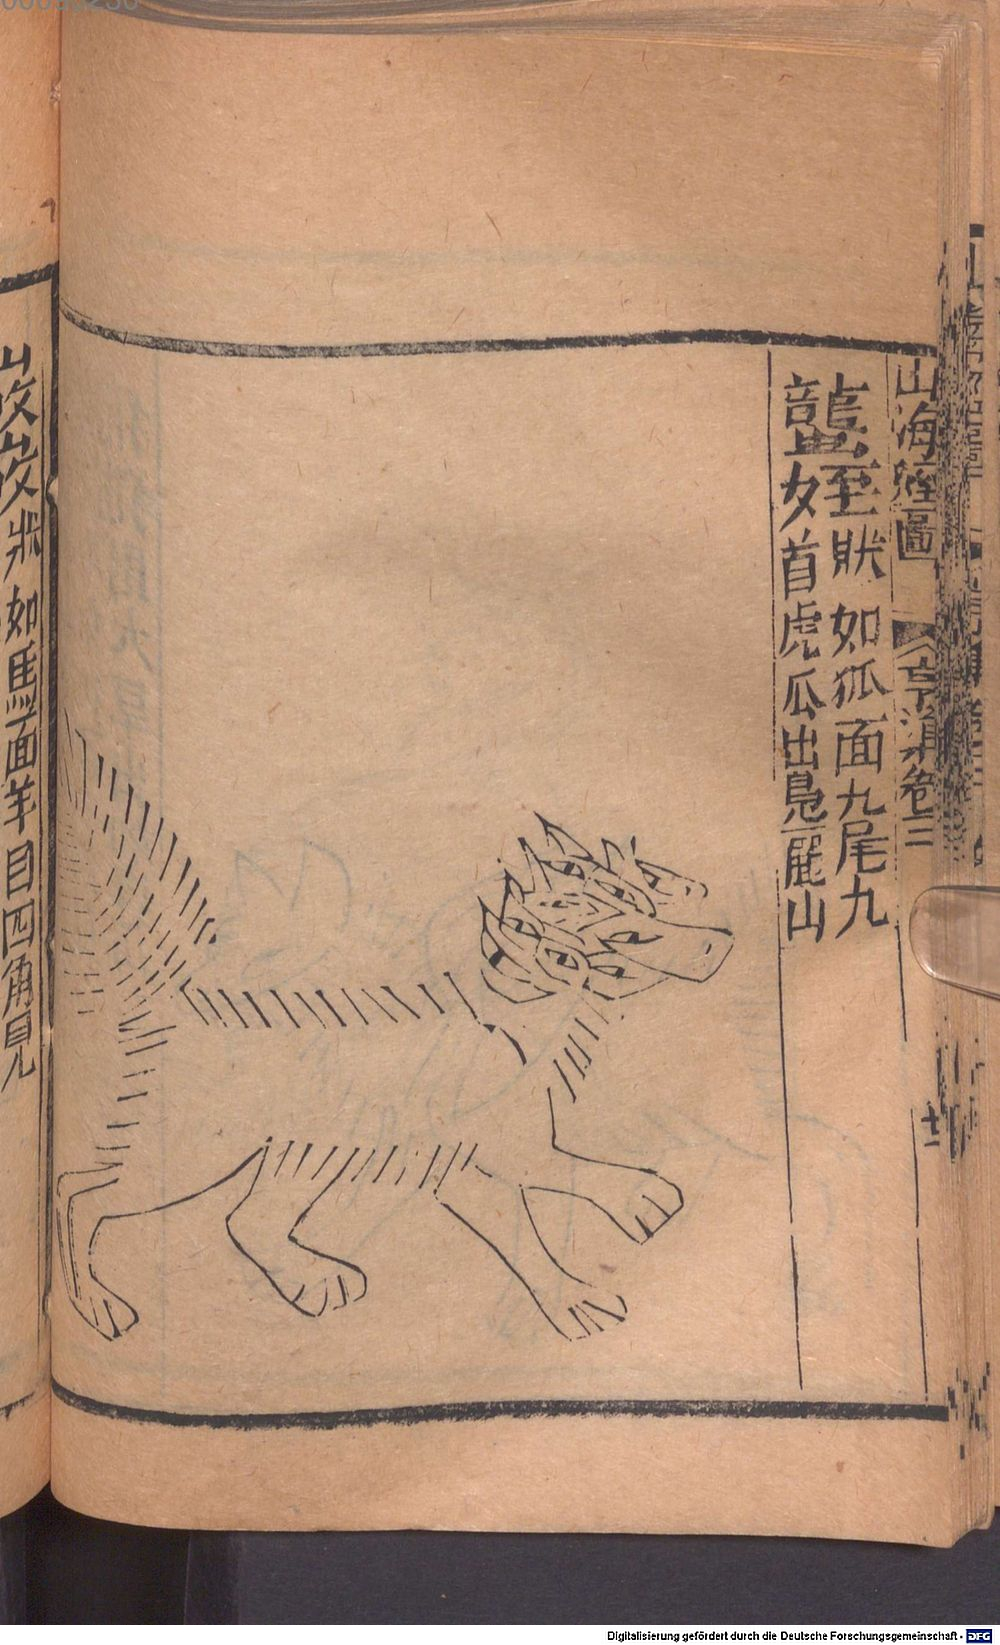 山海經圖
卷三
蠪姪狀如狐面九尾九
首虎瓜出鳧麗山
峳峳狀如馬面羊目四角見
Digitalisierung gefördert durch die Deutsche Forschungsgemeinschaft - DFG